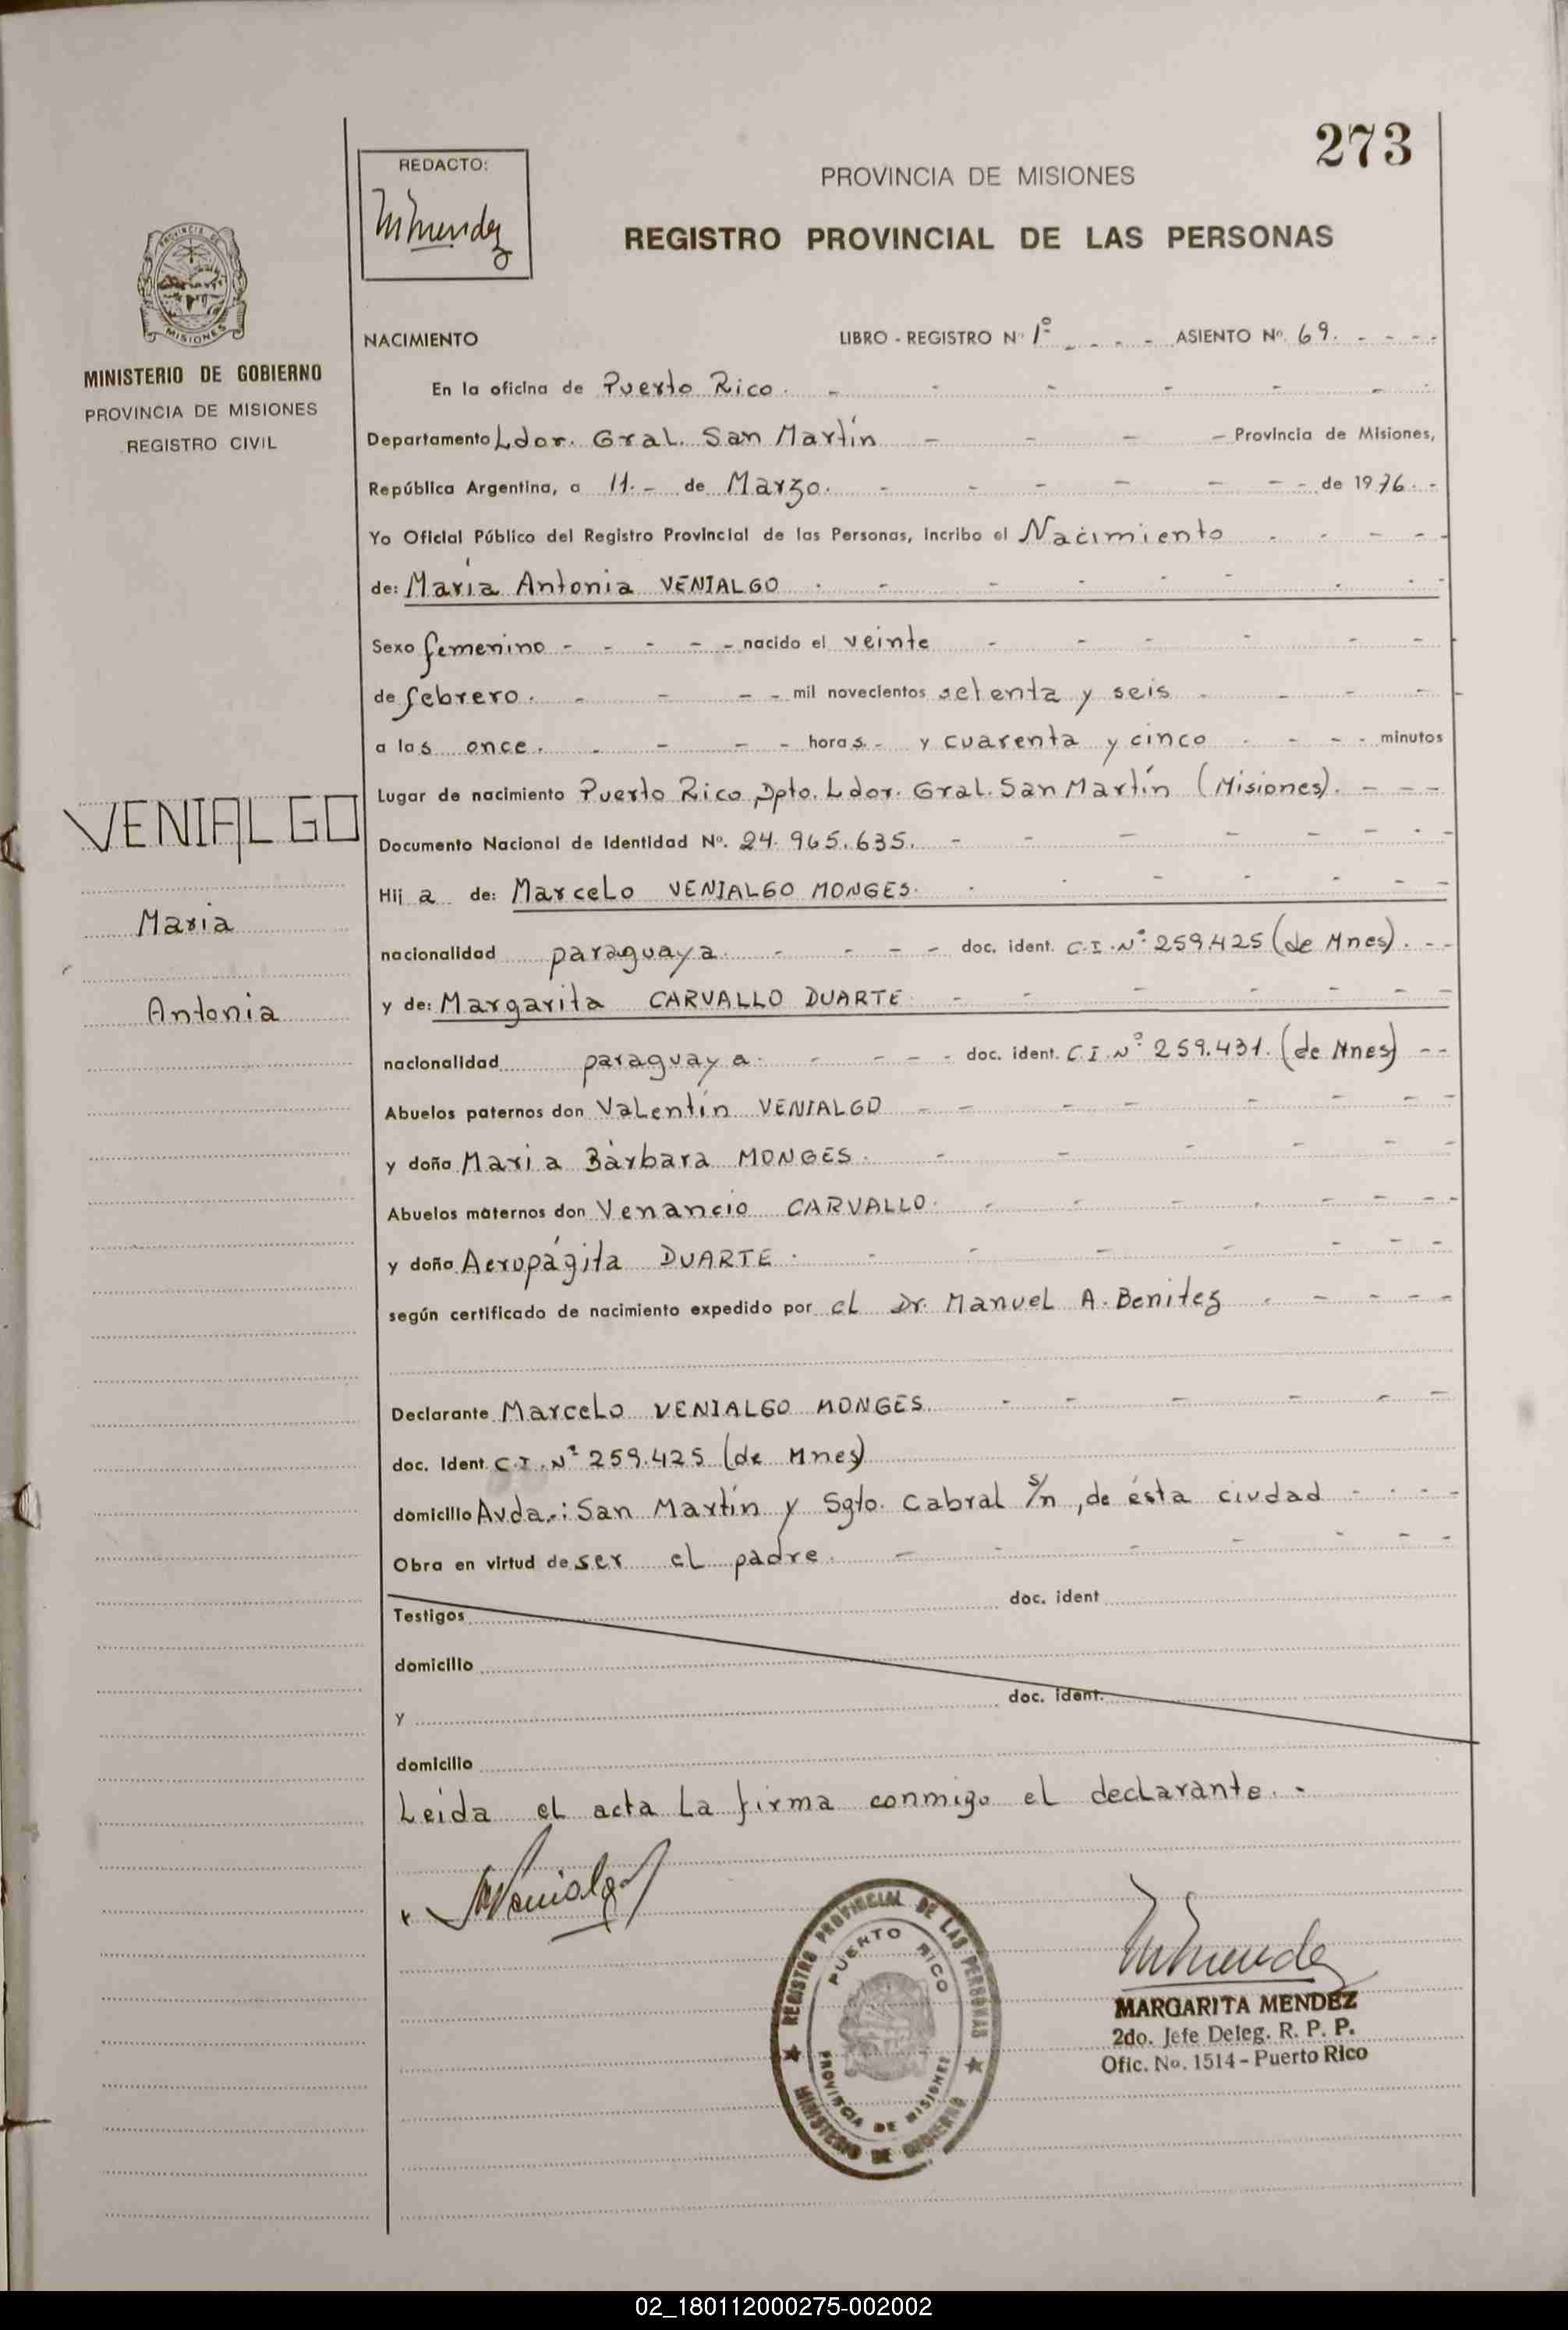 273
REDACTO:
MMendez
PROVINCIA DE MISIONES
REGISTRO PROVINCIAL DE LAS PERSONAS
PROVINCIA DE
MISIONES
MINISTERIO DE GOBIERNO
PROVINCIA DE MISIONES
REGISTRO CIVIL
NACIMIENTO LIBRO - REGISTRO Nº 1º - - - - ASIENTO Nº. 69. - - - -
En la oficina de Puerto Rico. - - - - - - -
Departamento Ldor. Gral. San Martín - - - - Provincia de Misiones,
República Argentina, a 11. - de Marzo. - - - - - - - de 1976. -
Yo Oficial Público del Registro Provincial de las Personas, incribo el Nacimiento - - - - -
de: María Antonia VENIALGO - - - - - - - -
Sexo femenino - - - - - nacido el veinte - - - - - -
de febrero. - - - - mil novecientos setenta y seis - - - - -
a las once. - - - - horas. - y cuarenta y cinco - - - - minutos
Lugar de nacimiento Puerto Rico, Dpto. Ldor. Gral. San Martín (Misiones). - - -
Documento Nacional de Identidad Nº. 24.965.635. - - - - - - - -
Hij a de: Marcelo VENIALGO MONGES. - - - - - - -
nacionalidad paraguaya. - - - - doc. ident. C.I. Nº 259.425 (de Mnes). - -
y de: Margarita CARVALLO DUARTE - - - - - - -
nacionalidad paraguaya. - - - - doc. ident. C.I. Nº 259.431. (de Mnes) - -
Abuelos paternos don Valentín VENIALGO - - - - - - -
y doña Maria Bárbara MONGES. - - - - - -
Abuelos maternos don Venancio CARVALLO. - - - - - - - -
y doña Aeropágita DUARTE. - - - - - - -
según certificado de nacimiento expedido por el Dr. Manuel A. Benitez - - - - -
Declarante Marcelo VENIALGO MONGES. - - - - - -
doc. Ident. C.I. Nº 259.425 (de Mnes)
domicilio Avda.: San Martín y Sgto. Cabral s/n, de ésta ciudad - - - -
Obra en virtud de ser el padre. - - - - - - -
Testigos doc. ident
domicilio
y doc. ident.
domicilio
Leida el acta la firma conmigo el declarante. -
VENIALGO
Maria
Antonia
MVenialgo
REGISTRO PROVINCIAL DE LAS PERSONAS
PUERTO RICO
PROVINCIA DE MISIONES
MINISTERIO DE GOBIERNO
MMendez
MARGARITA MENDEZ
2do. Jefe Deleg. R. P. P.
Ofic. No. 1514 - Puerto Rico
02_180112000275-002002